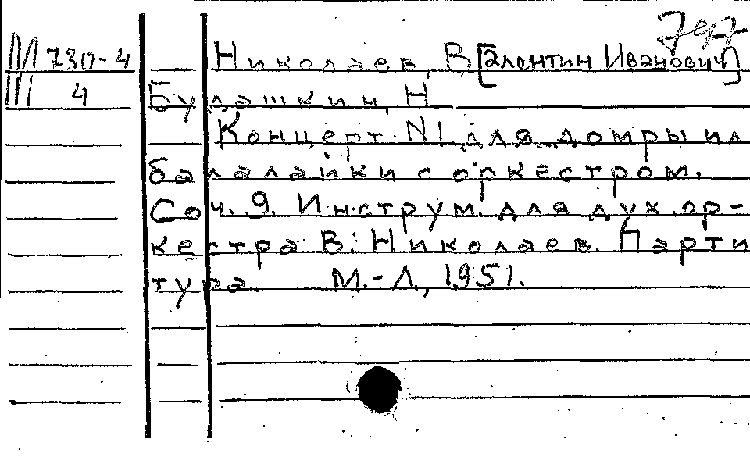 Ш 730-4 Николаев, В[алентин Иванович]
III 4 Будашкин, Н
Концерт N1 для домры или
балалайки с оркестром.
Соч. 9. Инструм. для дух. ор-
кестра В. Николаев. Парти
тура. М.-Л, 1951.